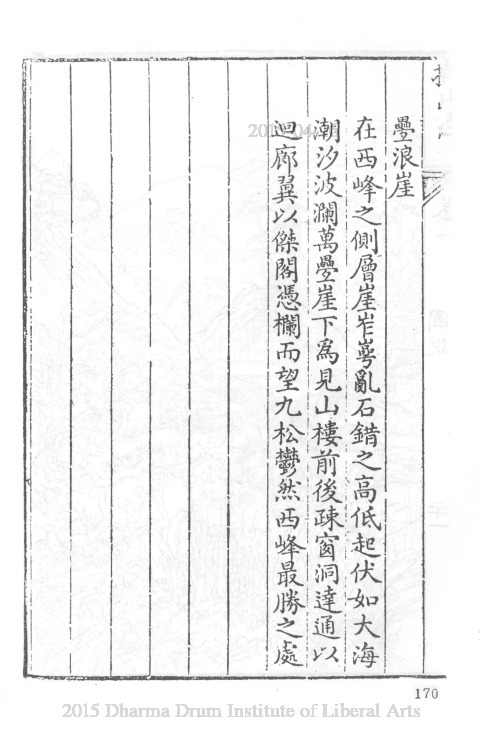 疊浪崖
在西峰之側層崖岝崿亂石錯之高低起伏如大海
潮汐波瀾萬疊崖下為見山樓前後疎窗洞達通以
迴廊翼以傑閣憑欄而望九松鬱然西峰最勝之處
170
2015 Dharma Drum Institute of Liberal Arts